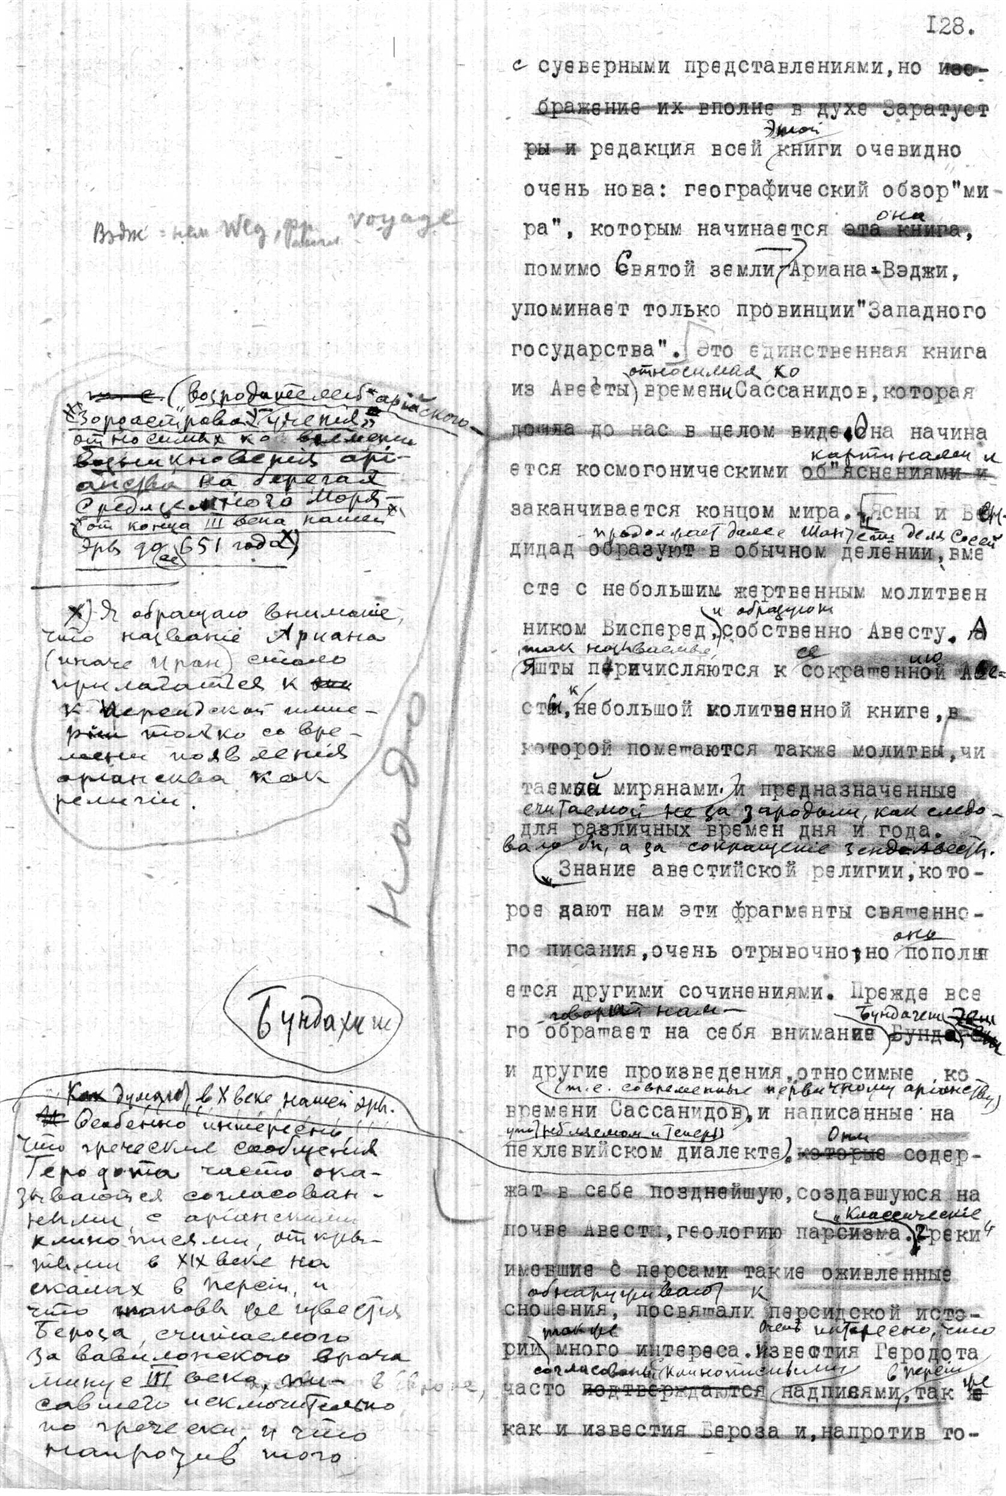 128.
с суеверными представлениями, но изо-
бражение их вполне в духе Заратуст
ры и редакция всей этой книги очевидно
очень нова: географический обзор "ми-
ра", которым начинается она эта книга,
Вэдж = нем Weg, фр. voyage
помимо Святой земли Ариана-Вэджи,
упоминает только провинции "Западного
государства". Это единственная книга
относимая ко
из Авесты времени Сассанидов, которая
дошла до нас в целом виде. Она начина
картинами и
ется космогоническими об"яснениями и
заканчивается концом мира. Ясны и Вен-
продолжает далее
дидад образуют в обычном делении, вме
сте с небольшим жертвенным молитвен
и образуют
ником Висперед, собственно Авесту. А
так называемые
Яшты причисляются к сокращенной Аве-
сты, к небольшой молитвенной книге, в
которой помещаются также молитвы, чи
таемый мирянами и предназначенные
считаемой не за зародыш, как следо-
для различных времен дня и года.
вало бы, а за сокращение зенд-авесты.
Знание авестийской религии, кото-
рое дают нам эти фрагменты священно-
го писания, очень отрывочно, но оно пополн
ется другими сочинениями. Прежде все
говорят нам Бундахеш
го обращает на себя внимание
и другие произведения, относимые ко
(т.е. современные первичному арианству)
времени Сассанидов, и написанные на
употребляемом и теперь
пехлевийском диалекте. Они которые содер-
жат в себе позднейшую, создавшуюся на
почве Авесты, геологию парсизма. "Классические
Греки"
имевшие с персами такие оживленные
обнаруживают к
сношения, посвящали персидской исто-
также очень интересно, что
рии много интереса. Известия Геродота
согласованы клинописными в персии
часто подтверждаются надписями, так же
как и известия Бероза и, напротив то-
(возродителей арийского
Зороастрова учения,
относимых ко времени
возникновения арi-
анства на берегах
Средиземного Моря
(от конца III века нашей
эры до 651 года)
х) Я обращаю внимание,
что название Ариана
(иначе Иран) стало
прилагаться к
к персидской импе-
рии только со вре-
мени появления
арианства как
религии.
надо
Бундахиш
Как думаю в X веке нашей эры.
Особенно интересень
что греческие сообщения
Геродота часто ока-
зываются согласован-
ными с арианскими
клинописями, откры-
тыми в XIX веке на
скалах в Персии, и
что таковы же известия
Бероза, считаемого
за вавилонского врача
минус III века, пи-
савшего исключительно
по гречески, и что
напротив того